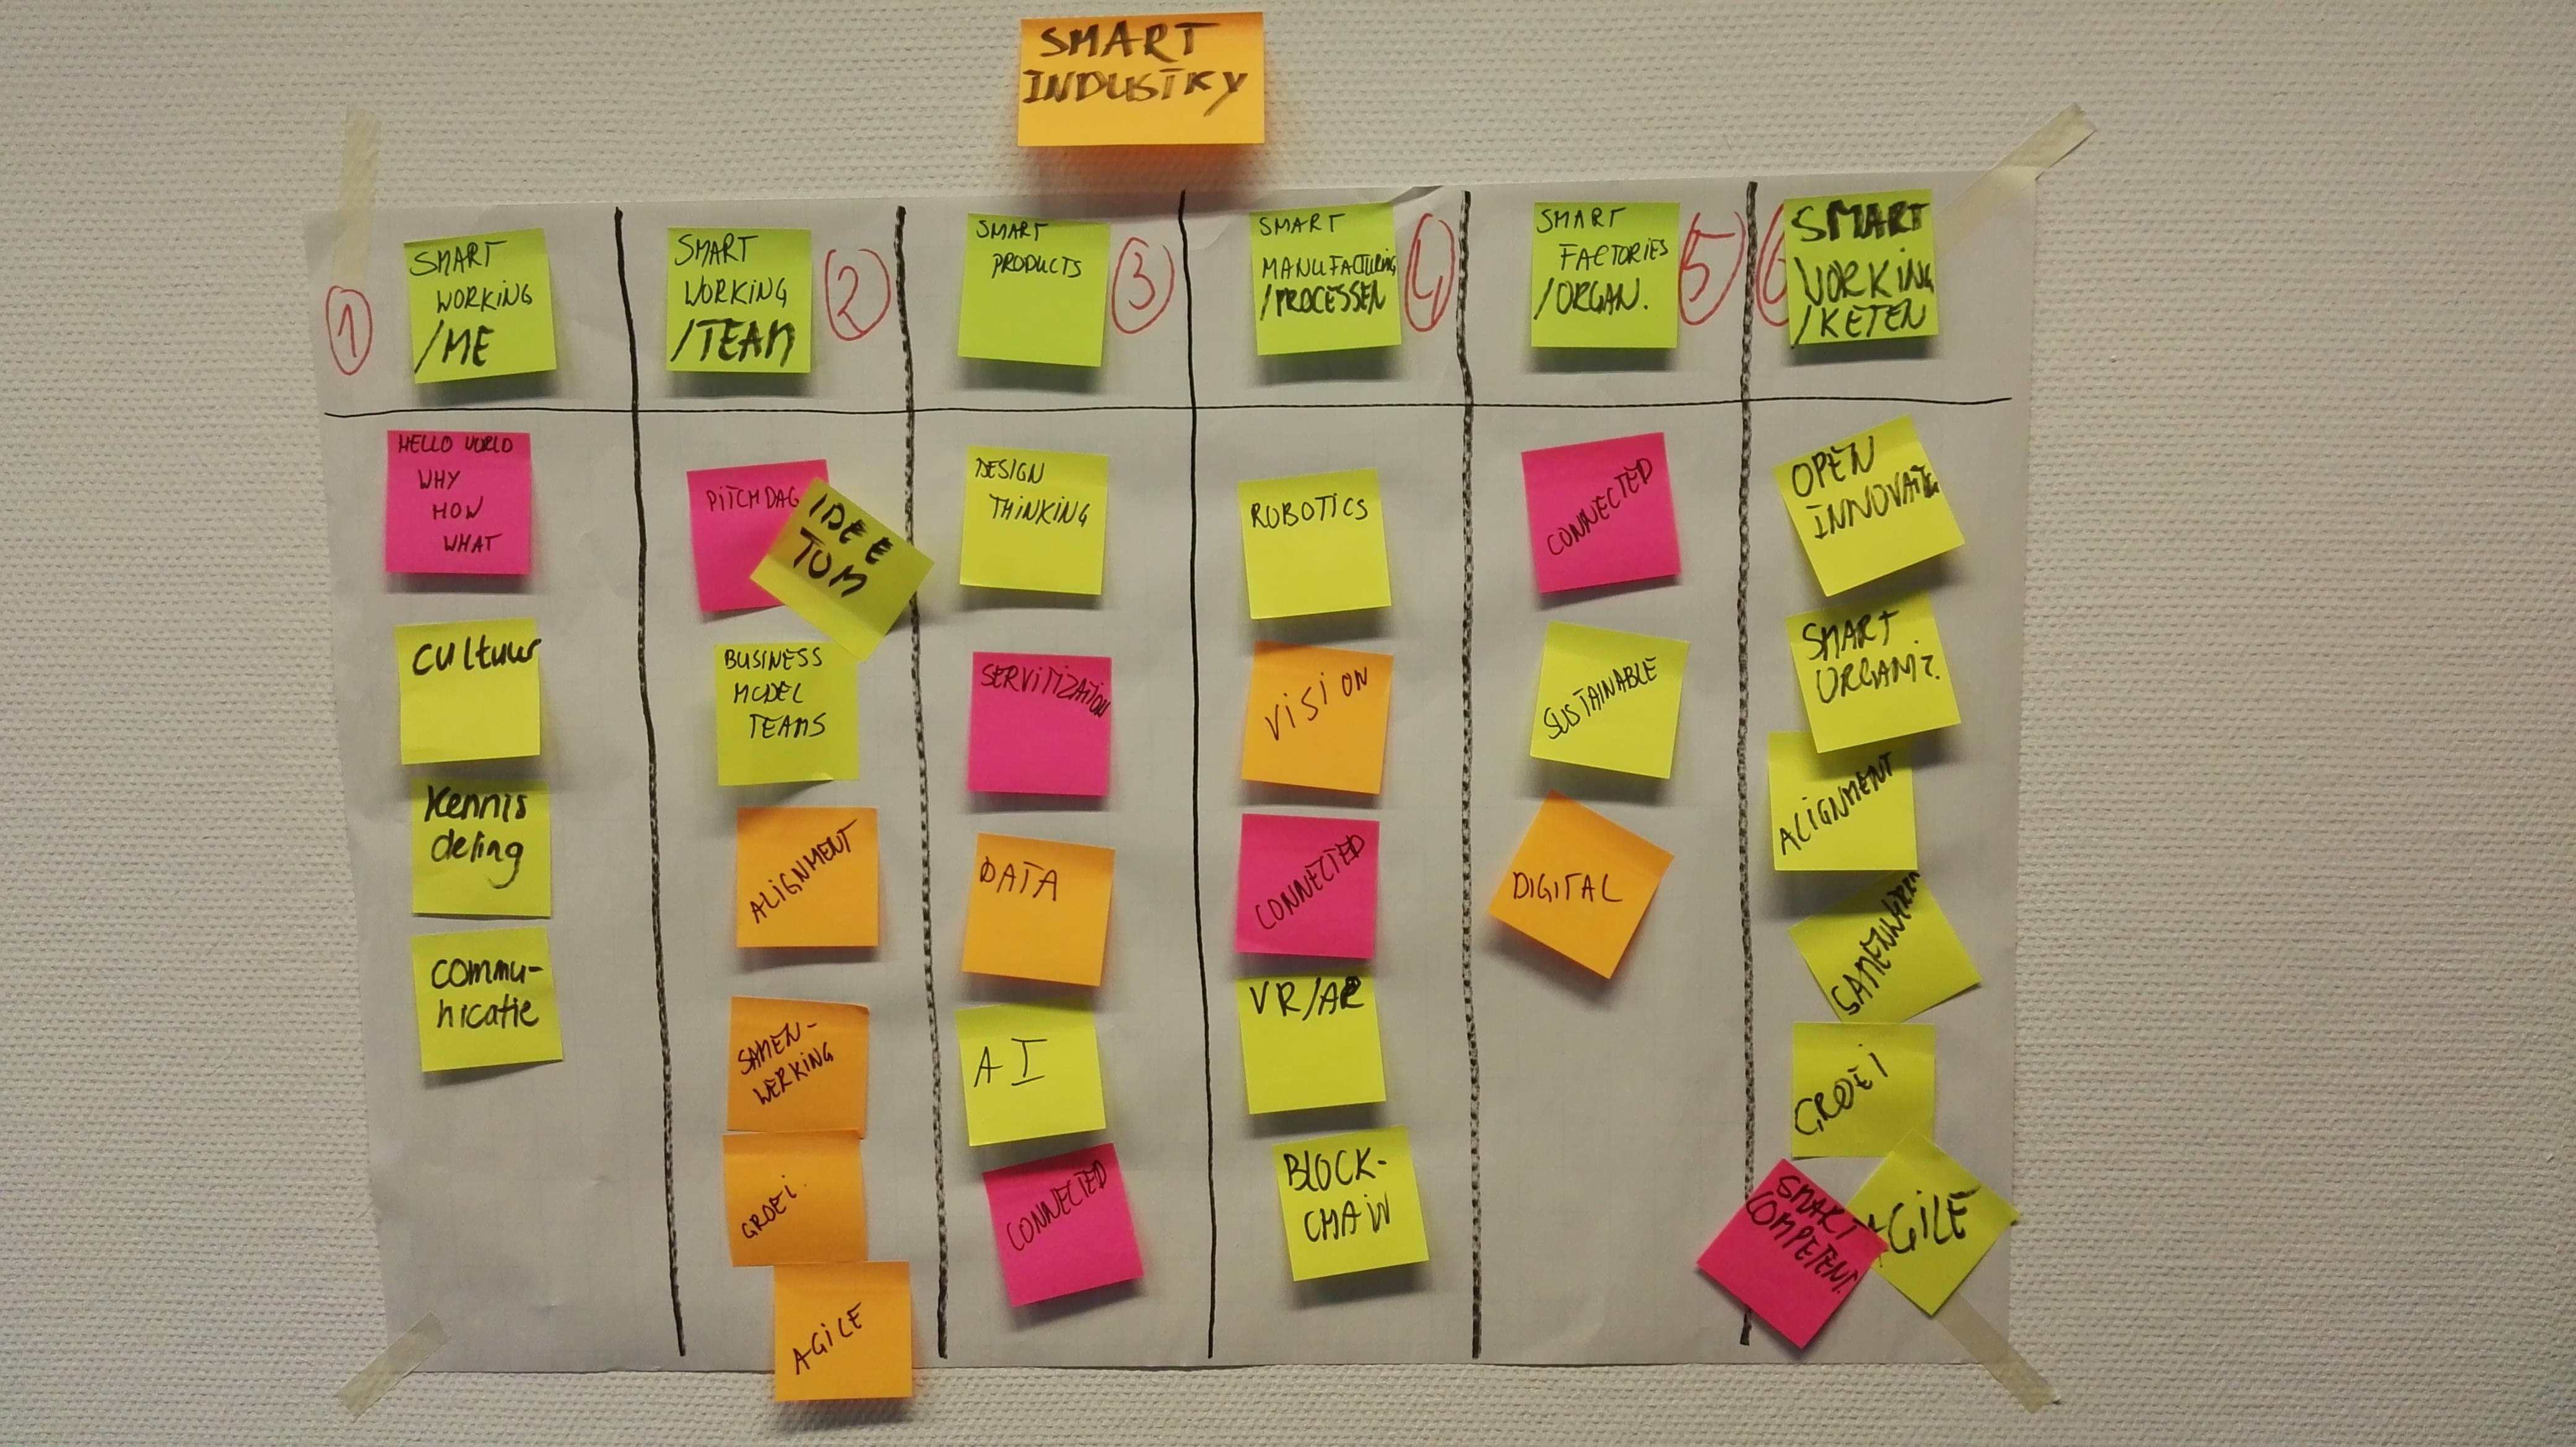 SMART
INDUSTRY
1
SMART
WORKING
/ME
HELLO WORLD
WHY
HOW
WHAT
cultuur
Kennis
deling
commu-
nicatie
SMART
WORKING
/TEAM
2
PITCH DAG
IDEE
TOM
BUSINESS
MODEL
TEAMS
ALIGNMENT
SAMEN-
WERKING
GROEI.
AGILE
SMART
PRODUCTS
3
DESIGN
THINKING
SERVITIZATION
DATA
AI
CONNECTED
SMART
MANUFACTURING
/PROCESSEN
4
ROBOTICS
VISION
CONNECTED
VR/AR
BLOCK-
CHAIN
SMART
FACTORIES
/ORGAN.
5
CONNECTED
SUSTAINABLE
DIGITAL
6
SMART
WORKING
/KETEN
OPEN
SMART
ALIGNMENT
GROEI
AGILE
SMART
COMPETENT.